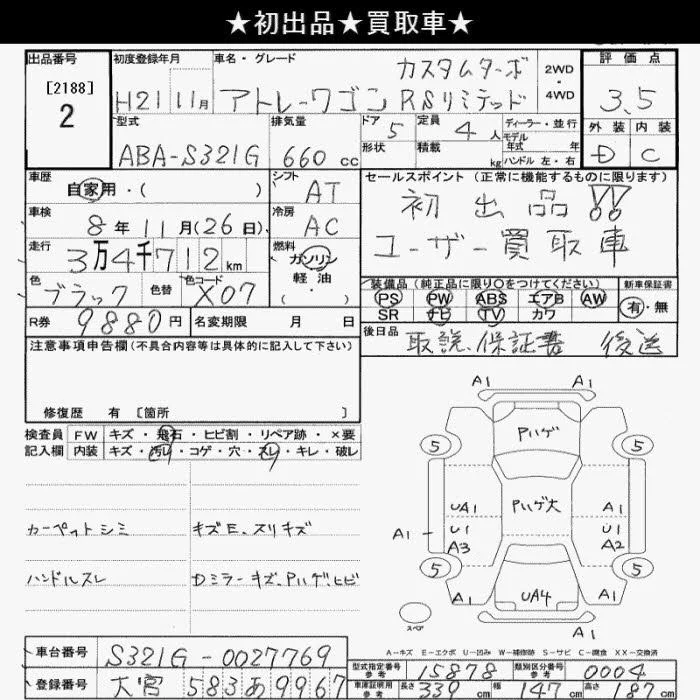 ★初出品★買取車★
出品番号 初度登録年月 車名・グレード カスタムターボ 2WD・4WD 評価点
[2188] 2 H21 11月 アトレーワゴン RSリミテッド 3.5
型式 排気量 ドア 5 定員 4人 ディーラー・並行 外装 内装
モデル年式 年式
ABA-S321G 660cc 形状 積載 kg ハンドル 左・右 D C
車歴 シフト セールスポイント(正常に機能するものに限ります)
自家用・( ) AT 初出品!!
車検 8年11月(26日) 冷房 AC ユーザー買取車
走行 3万4千712km 燃料 ガソリン・軽油・( )
色 ブラック 色替 色コード X07
装備品(純正品に限り○をつけてください) 新車保証書
PS PW ABS エアB AW 有・無
SR ナビ TV カワ
R券 9880円 名変期限 月 日
後日品 取説、保証書 後送
注意事項申告欄(不具合内容等は具体的に記入して下さい)
修復歴 有 [箇所 ]
検査員 FW キズ・飛石・ヒビ割・リペア跡・×要
記入欄 内装 キズ・汚レ・コゲ・穴・スレ・キレ・破レ
カーペットシミ キズE、スリキズ
ハンドルスレ Dミラーキズ、Pハゲ、ヒビ
A1 A1
5 Pハゲ 5
UA1 Pハゲ大 A1
A1 U1 U1
A3 A2
5 5
A1 UA4 A1
スペア A1
A-キズ E-エクボ U-凹み W-補修跡 S-サビ C-腐食 XX-交換済
車台番号 S321G-0027769
型式指定番号 参考 15878 類別区分番号 参考 0004
登録番号 大宮 583 あ 9967
車庫証明用 参考 長さ 339cm 幅 147cm 高さ 187cm